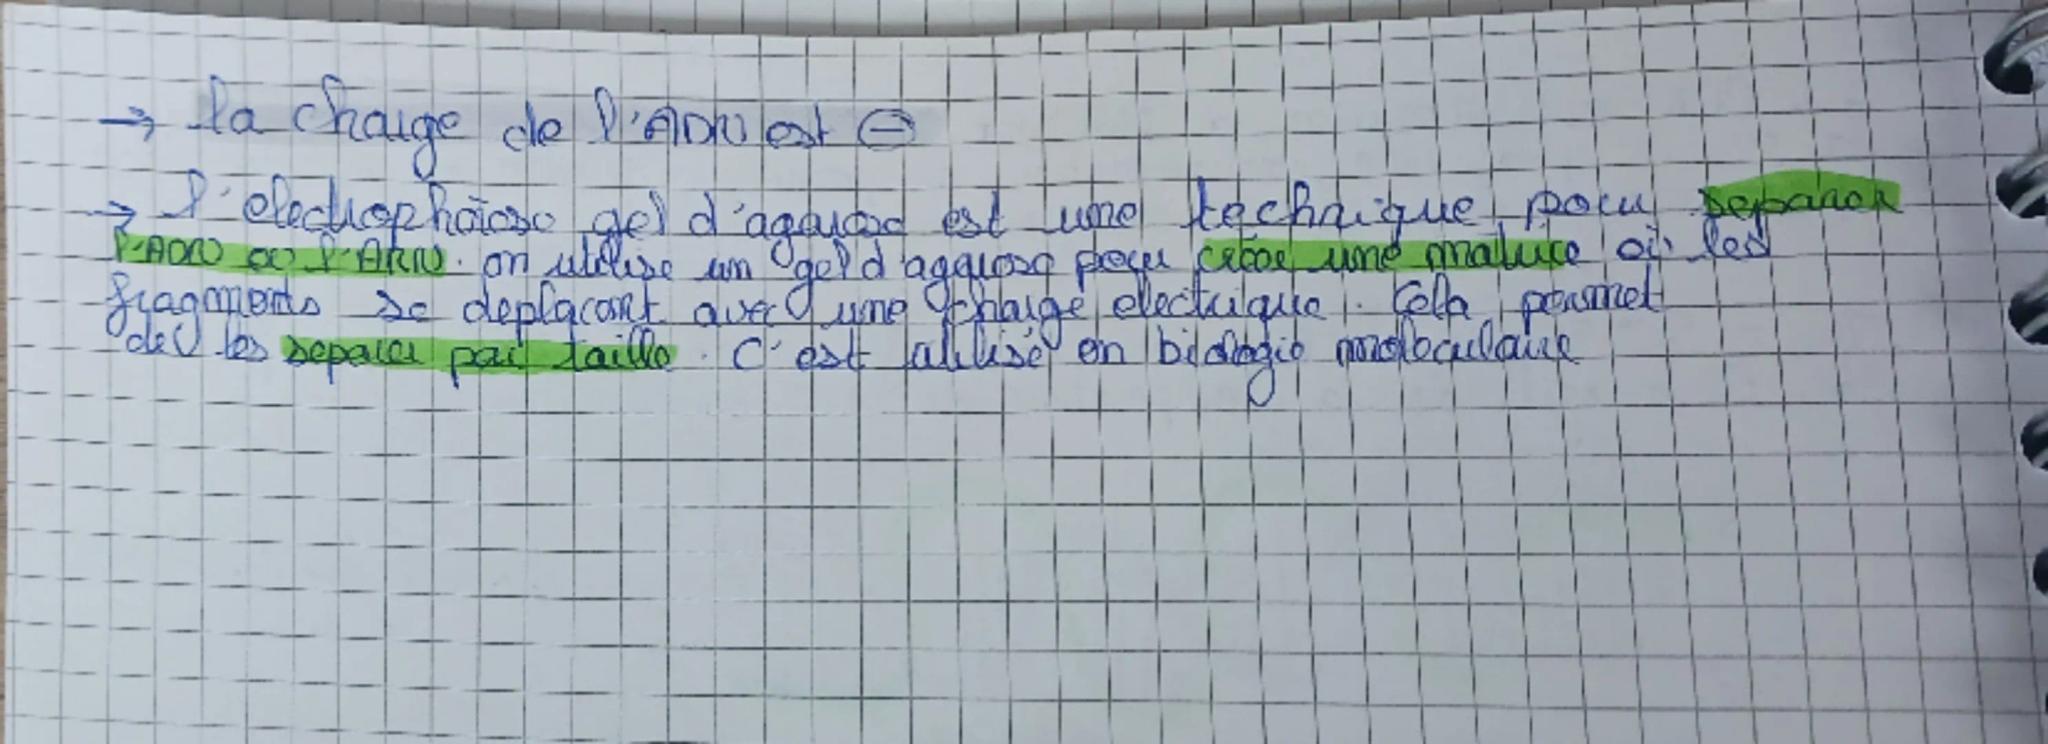 → la charge de l'ADN est ⊖
→ l'electrophorèse gel d'agarose est une technique pour separer
l'ADN ou l'ARN. on utilise un gel d'agarose pour créer une matrice où les
fragments se deplaçant avec une charge electrique. Cela permet
de les separer par taille. C'est utilisé en biologie moleculaire